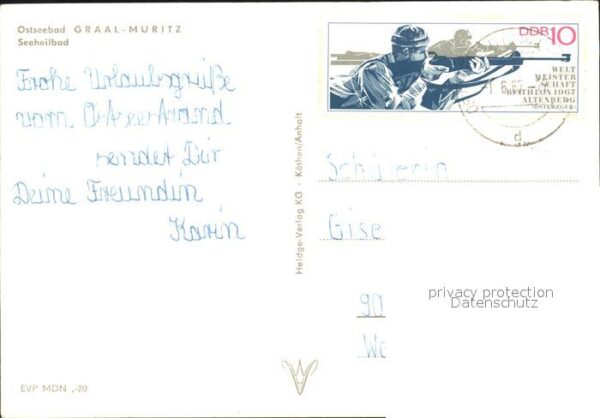 Ostseebad GRAAL-MÜRITZ
Seeheilbad
Frohe Urlaubsgrüße
vom Ostseestrand
sendet Dir
Deine Freundin
Karin
EVP MDN ,-20
Heldge-Verlag KG · Köthen/Anhalt
DDR 10
WELT
MEISTER
SCHAFT
BIATHLON 1967
ALTENBERG
(OSTERZGEB)
6.67
d
Schülerin
Gise
90
We
privacy protection
Datenschutz